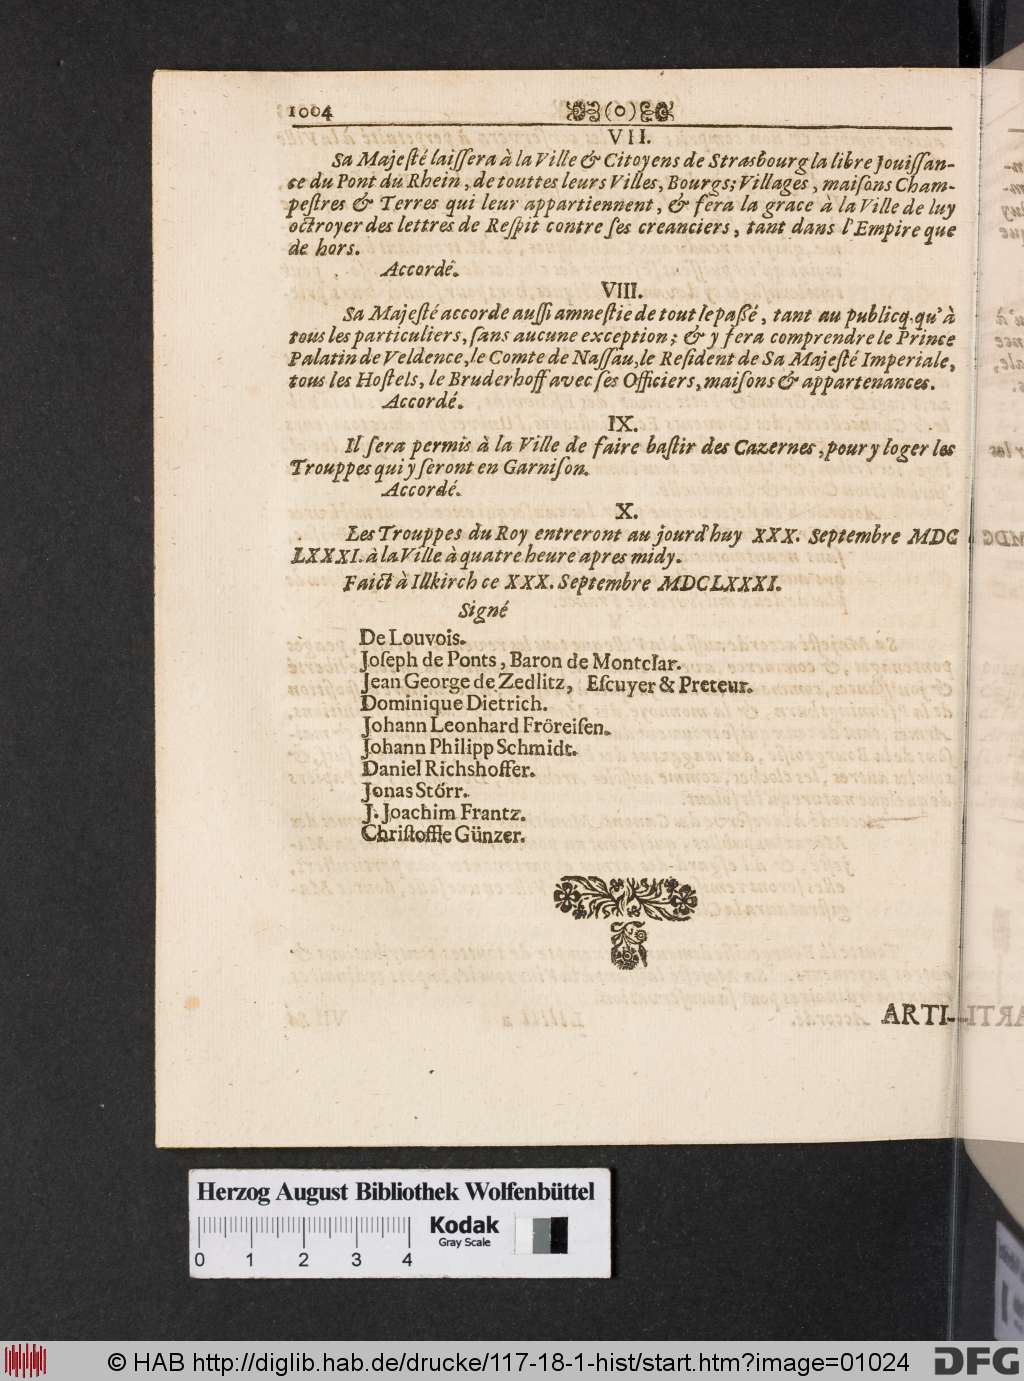 1004 (o)
VII.
Sa Majeſté laiſſera à la Ville & Citoyens de Strasbourg la libre Jouiſſan-
ce du Pont du Rhein, de touttes leurs Villes, Bourgs; Villages, maiſons Cham-
peſtres & Terres qui leur appartiennent, & fera la grace à la Ville de luy
octroyer des lettres de Reſpit contre ſes creanciers, tant dans l'Empire que
de hors.
Accordé.
VIII.
Sa Majeſté accorde auſſi amneſtie de tout le paßé, tant au publicq, qu'à
tous les particuliers, ſans aucune exception; & y fera comprendre le Prince
Palatin de Veldence, le Comte de Naſſau, le Reſident de Sa Majeſté Imperiale,
tous les Hoſtels, le Bruderhoff avec ſes Officiers, maiſons & appartenances.
Accordé.
IX.
Il ſera permis à la Ville de faire baſtir des Cazernes, pour y loger les
Trouppes qui y ſeront en Garniſon.
Accordé.
X.
Les Trouppes du Roy entreront au jourd'huy XXX. Septembre MDC
LXXXI. à la Ville à quatre heure apres midy.
Faict à Illkirch ce XXX. Septembre MDCLXXXI.
Signé
De Louvois.
Joſeph de Ponts, Baron de Montclar.
Jean George de Zedlitz, Eſcuyer & Preteur.
Dominique Dietrich.
Johann Leonhard Fröreiſen.
Johann Philipp Schmidt.
Daniel Richshoffer.
Jonas Störr.
J. Joachim Frantz.
Chriſtoffle Günzer.
ARTI-
Herzog August Bibliothek Wolfenbüttel
Kodak
Gray Scale
0 1 2 3 4
© HAB http://diglib.hab.de/drucke/117-18-1-hist/start.htm?image=01024 DFG